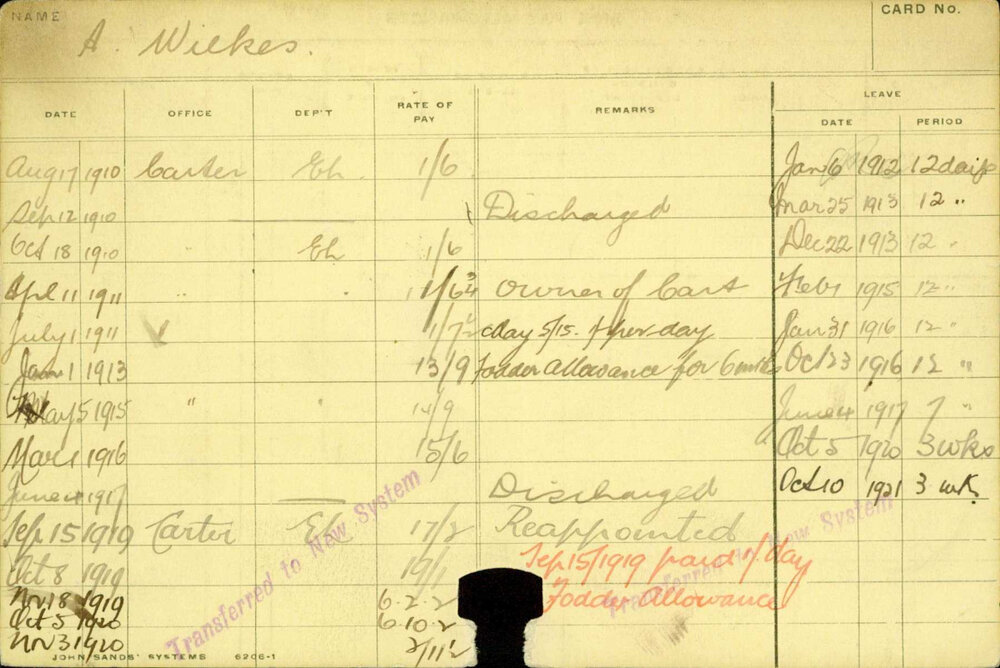 NAME A. Wilkes. CARD No.
DATE OFFICE DEP'T RATE OF PAY REMARKS LEAVE
DATE PERIOD
Aug 17 1910 Carter Eh. 1/6 Jan 6 1912 12 days
Sep 12 1910 Discharged Mar 25 1913 12 "
Oct 18 1910 " Eh 1/6 Dec 22 1913 12 "
Apl 11 1911 " " 1/6¾ Owner of Cart Feb 1 1915 12 "
July 1 1911 1/7½ May 5/15. 1/ per day Jan 31 1916 12 "
Jan 1 1913 13/9 Fodder Allowance for 6 mths Oct 23 1916 12 "
May 5 1915 " " 14/9 June 4 1917 7 "
Mar 1 1916 15/6 Oct 5 1920 3 wks
June 4 1917 Discharged Oct 10 1921 3 wks
Sep 15 1919 Carter Eh 17/2 Reappointed
Oct 8 1919 19/1 Sep 15/1919 paid 1/ day
Nov 18 1919 6-2-2 Fodder Allowance
Oct 5 1920 6-10-2
Nov 3 1920 2/11½
Transferred to New System
Transferred to New System
JOHN SANDS' SYSTEMS 6206-1